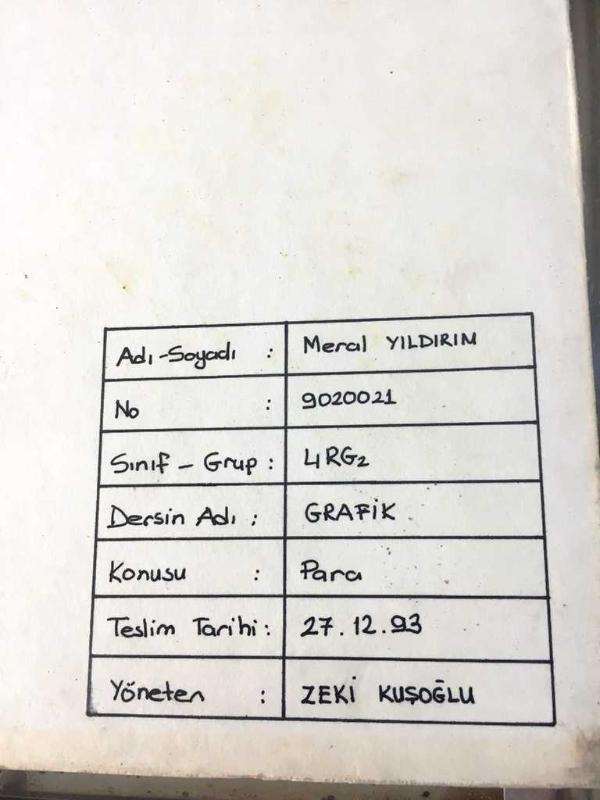 Adı-Soyadı : Meral YILDIRIM
No : 9020021
Sınıf - Grup : 4RG2
Dersin Adı : GRAFİK
Konusu : Para
Teslim Tarihi : 27.12.93
Yöneten : ZEKİ KUŞOĞLU